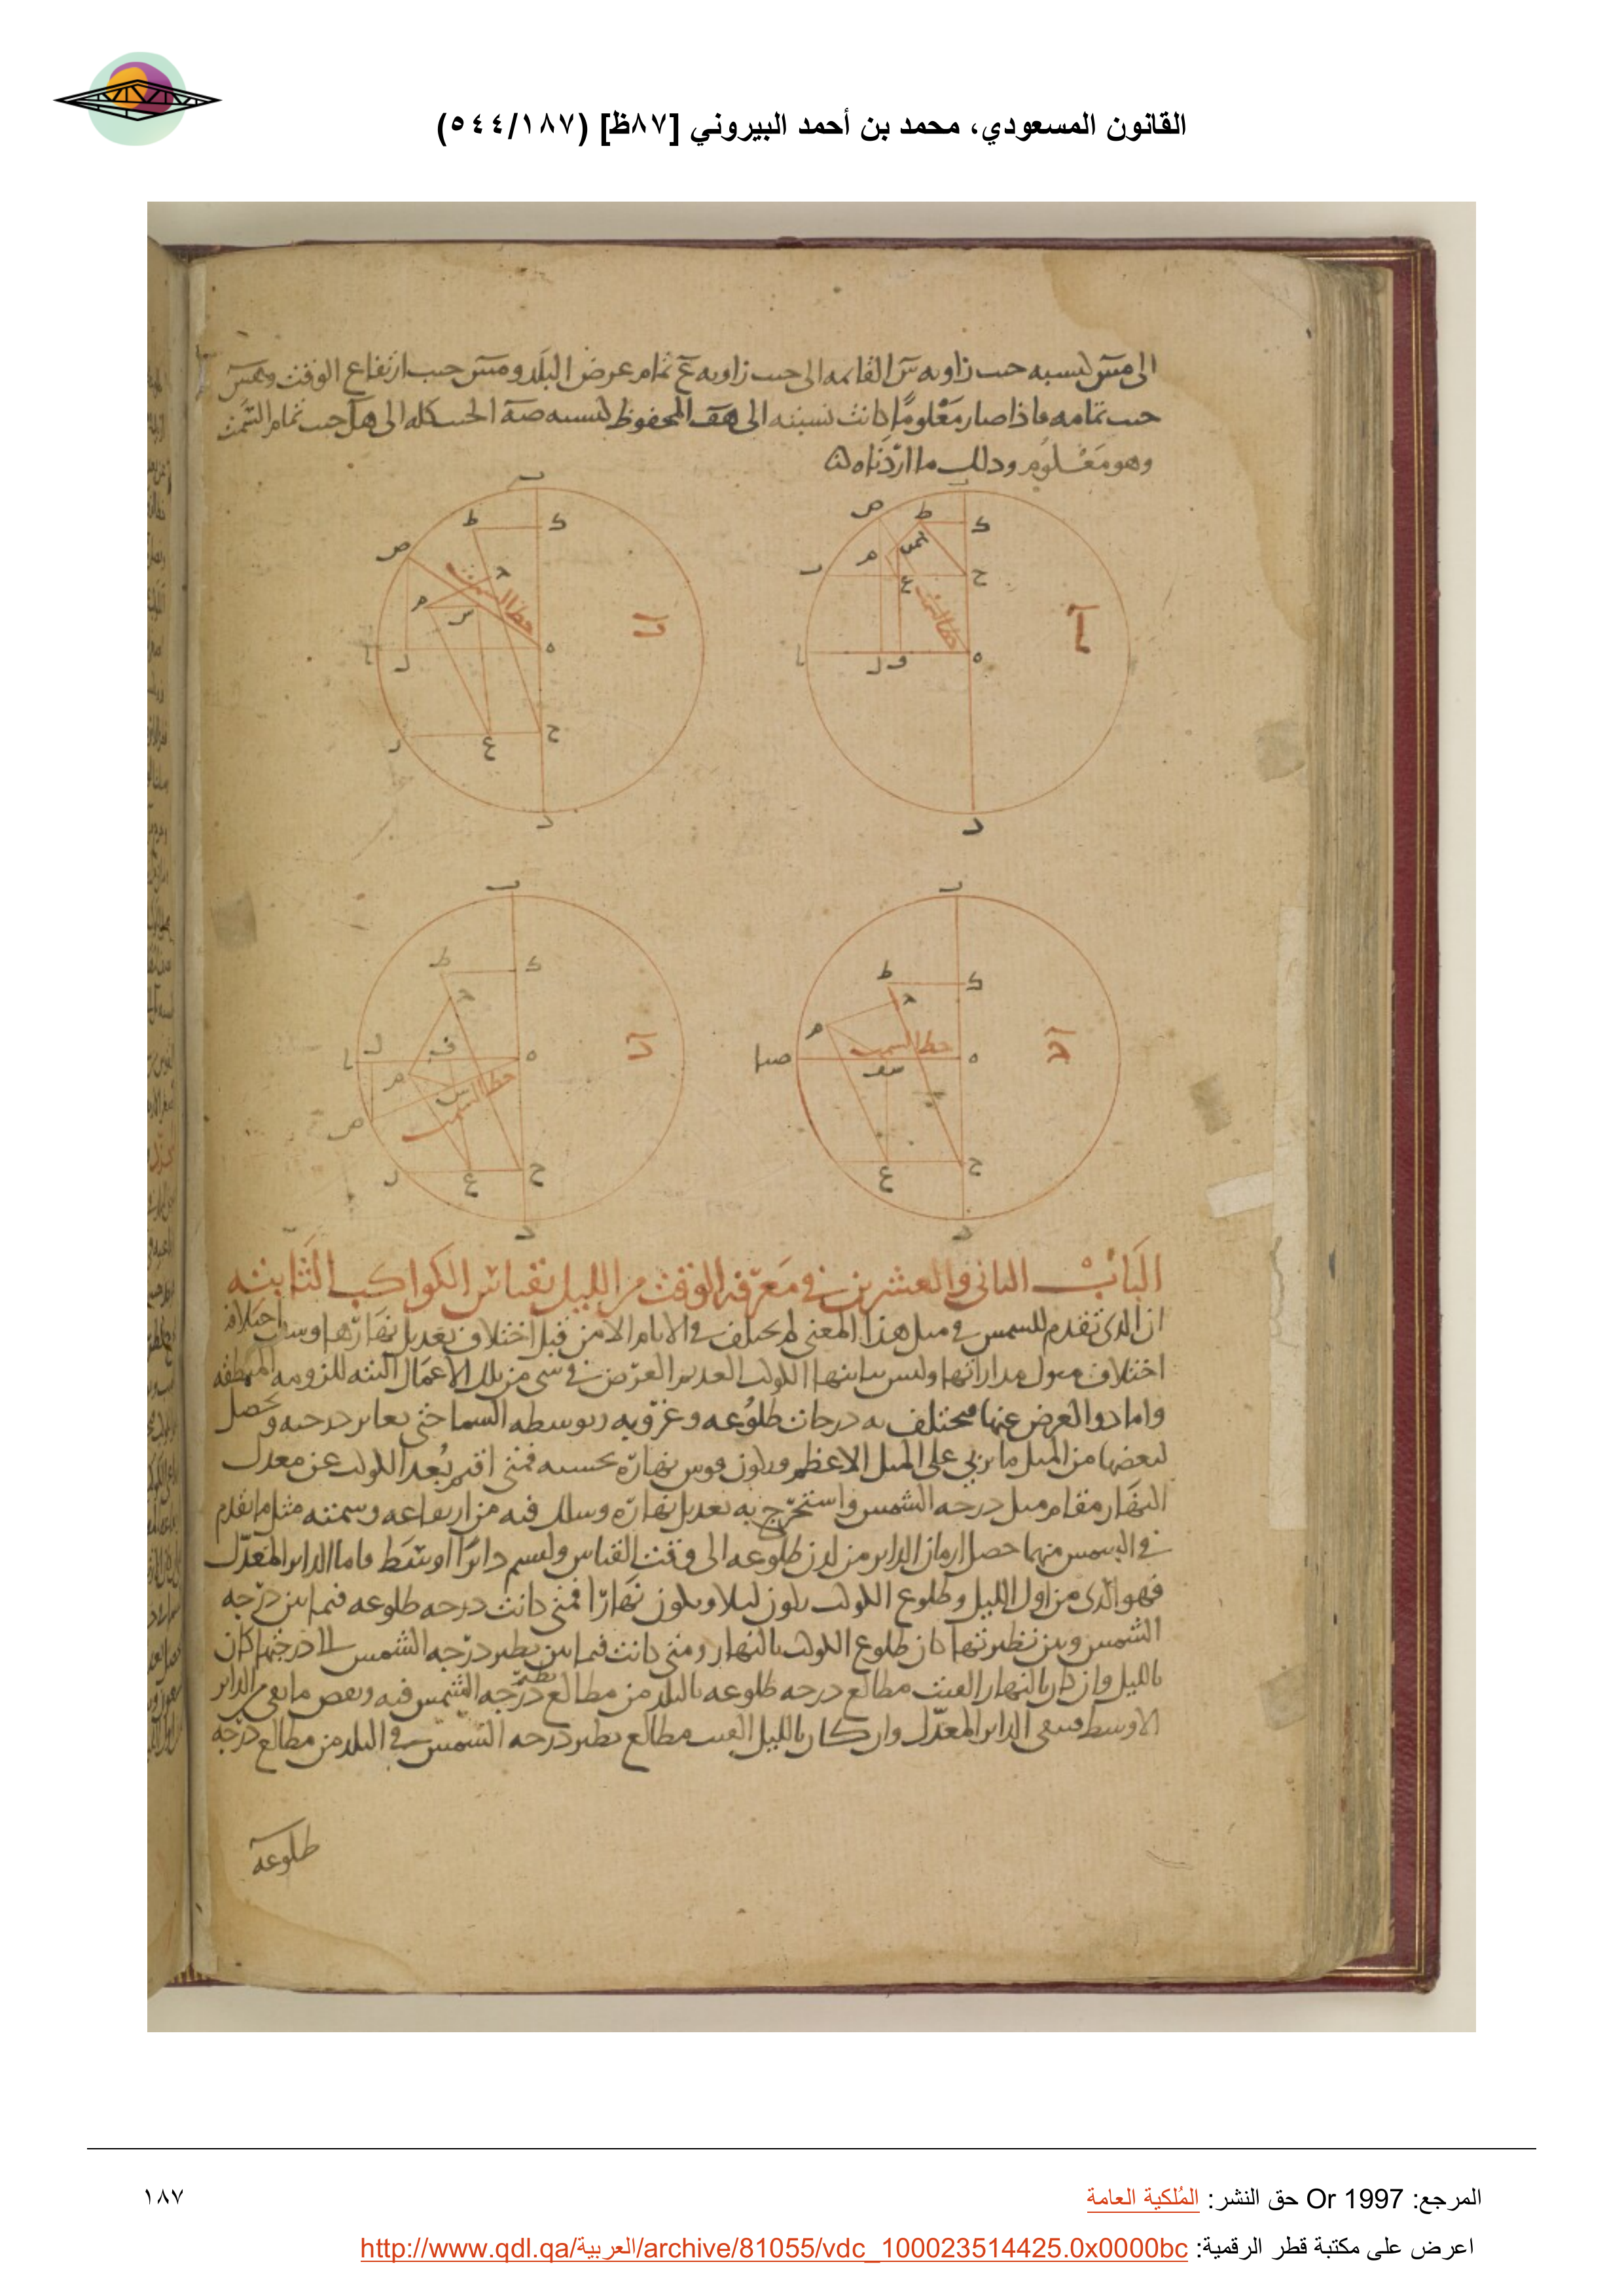 القانون المسعودي، محمد بن أحمد البيروني [٨٧ظ] (٥٤٤/١٨٧)
الى مس كنسبه جيب زاويه س القائمه الى جيب زاويه ع تمام عرض البلد ومس جيب ارتفاع الوقت وهس
جيب تمامه فاذا صار معلوما كانت نسبته الى هف المحفوظ كنسبه صه الجيب كله الى هل جيب تمام السمت
وهو معلوم وذلك ما اردناه
ب
ص ط ك
م
ر ع ح
خط السمت
آ
ا ل ف ه
د
ب
ط ك
ص
م س
خط السمت
ب
ا ل ه
ر ع ح
د
ب
ط ك
م
خط السمت
ج
ه
ع ح
د
ب
ط ك
ا ل ف ه
م س
خط السمت
د
ص
ر ع ح
د
الباب الثانى والعشرين فى معرفه الوقت من الليل بقياس الكواكب الثابته
ان الذى تقدم للشمس فى مثل هذا المعنى لم يختلف فى الايام الا من قبل اختلاف تعديل نهارها
اختلاف ميول مداراتها وليس يباينها الكوكب العديم العرض فى شى من تلك الاعمال البته للزومه المنطقه
واما ذوا العرض عنها فيختلف به درجات طلوعه وغروبه وتوسطه السما حتى يغاير درجته ويحصل
لبعضها من الميل ما يربى على الميل الاعظم ويكون قوس نهاره بحسبه فمتى اقيم بعد الكوكب عن معدل
النهار مقام ميل درجه الشمس واستخرج به تعديل نهاره وسلك فيه من ارتفاعه وسمته مثل ما تقدم
فى الشمس منهما حصل ازمان الداير من لدن طلوعه الى وقت القياس وليسم دائرا اوسط فاما الداير المعدل
فهو الذى من اول الليل وطلوع الكوكب يكون ليلا ويكون نهارا فمتى كانت درجه طلوعه فيما بين درجه
الشمس وبين نظيرتها كان طلوع الكوكب بالنهار ومتى كانت فيما بين نظير درجه الشمس الى درجتها كان
بالليل وان كان بالنهار القيت مطالع درجه طلوعه بالبلد من مطالع نظير درجه الشمس فيه ونقص ما بقى من الداير
الاوسط فيبقى الداير المعدل وان كان بالليل القيت مطالع نظير درجه الشمس فى البلد من مطالع درجه
طلوعه
المرجع: Or 1997 حق النشر: المُلكية العامة
١٨٧
اعرض على مكتبة قطر الرقمية: http://www.qdl.qa/العربية/archive/81055/vdc_100023514425.0x0000bc